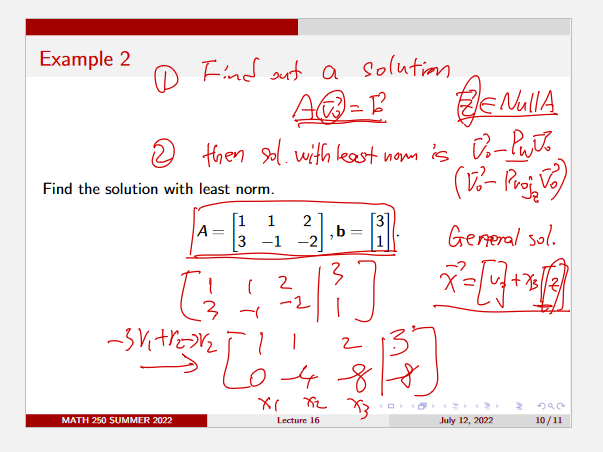 Example 2
① Find out a solution
A v⃗₀ = b⃗
z⃗ ∈ Null A
② then sol. with least norm is v⃗₀ - P_W v⃗₀
(v⃗₀ - Proj_z v⃗₀)
Find the solution with least norm.
A = [1 1 2; 3 −1 −2], b = [3; 1].
General sol.
x⃗ = [v⃗₀] + x₃[z⃗]
[1 1 2 | 3
3 -1 -2 | 1]
-3r₁+r₂→r₂
[1 1 2 | 3
0 -4 -8 | -8]
x₁ x₂ x₃
MATH 250 SUMMER 2022 Lecture 16 July 12, 2022 10 / 11